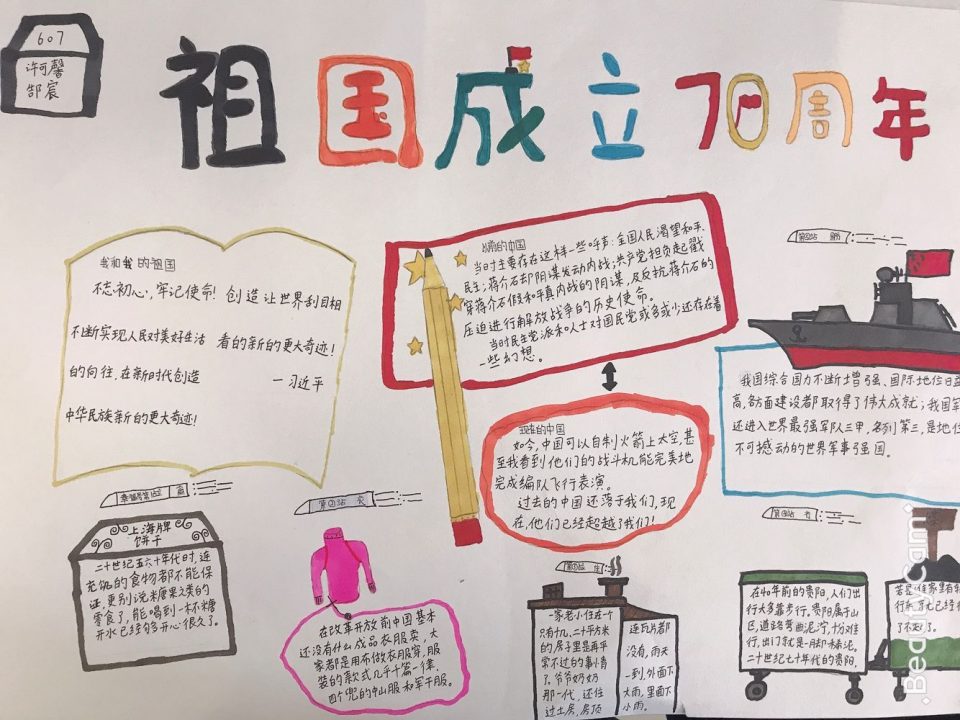 607
许可馨
郜宸
祖国成立70周年
我和我的祖国
不忘初心,牢记使命! 创造让世界刮目相
不断实现人民对美好生活 看的新的更大奇迹!
的向往,在新时代创造 一习近平
中华民族新的更大奇迹!
以前的中国
当时主要存在这样一些呼声:全国人民渴望和平、
民主;蒋介石却阴谋发动内战;共产党担负起戳
穿蒋介石假和平真内战的阴谋,及反抗蒋介石的
压迫进行解放战争的历史使命。
当时民主党派和人士对国民党或多或少还存在着
一些幻想。
现在的中国
如今,中国可以自制火箭上太空,甚
至我看到他们的战斗机能完美地
完成编队飞行表演。
过去的中国还落于我们,现
在,他们已经超越了我们!
我国综合国力不断增强、国际地位日益
高,各方面建设都取得了伟大成就;我国军
还进入世界最强军队三甲,名列第三,是地位
不可撼动的世界军事强国。
上海牌
饼干
二十世纪五六十年代时,连
充饥的食物都不能保
证,更别说糖果之类的
零食了,能喝到一杯糖
开水已经够开心很久了。
第四站 衣
在改革开放前中国基本
还没有什么成品衣服卖,大
家都是用布做衣服穿,服
装的款式几乎千篇一律,
四个兜的中山服和军干服。
一家老小住在一个
只有十几、二十平方米
的房子里是再平
常不过的事情
了,爷爷奶奶
那一代,还住
过土房,房顶
连瓦片都
没有,雨天
一到,外面下
大雨,里面下
小雨。
在40年前的贵阳,人们出
行大多靠步行,贵阳属于山
区,道路弯曲泥泞,十分难
行,出门就是一脚泥。
二十世纪七十年代的贵阳,
BeautyCam